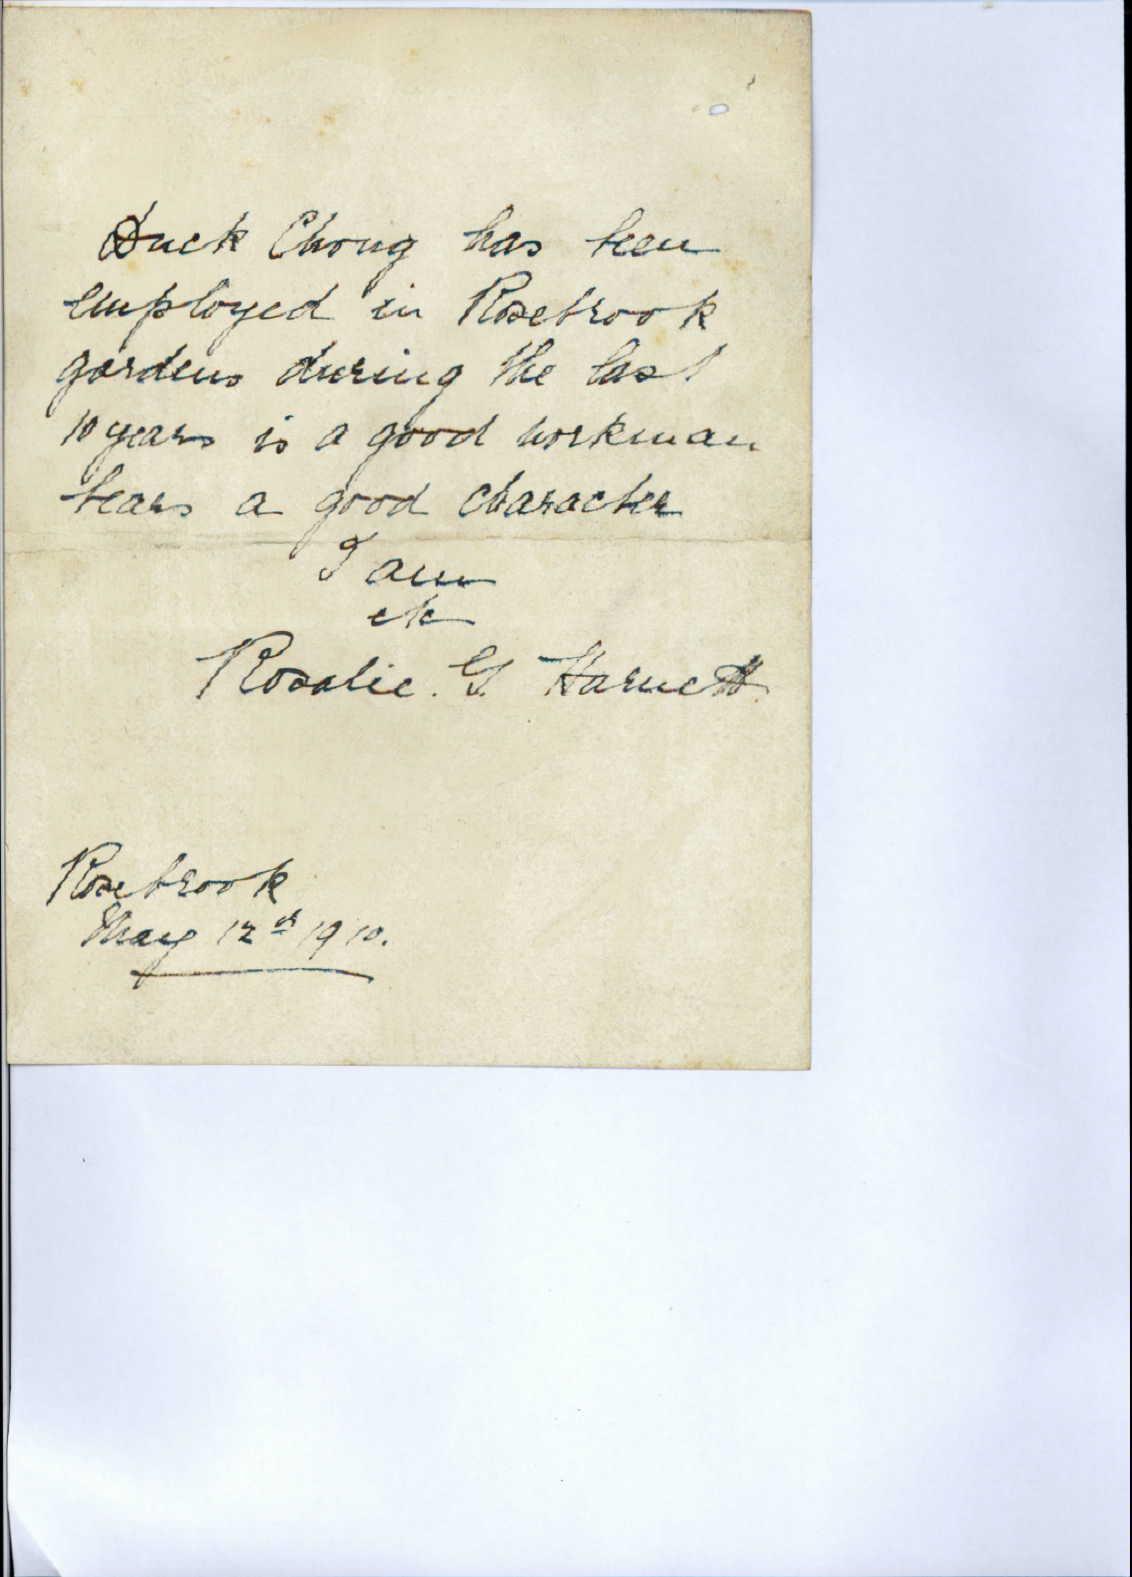 Duck Chong has been
employed in Rosebrook
gardens during the last
10 years is a good workman
bears a good character
I am
etc
Rosalie. G. Harnett.
Rosebrook
May 12th 1910.